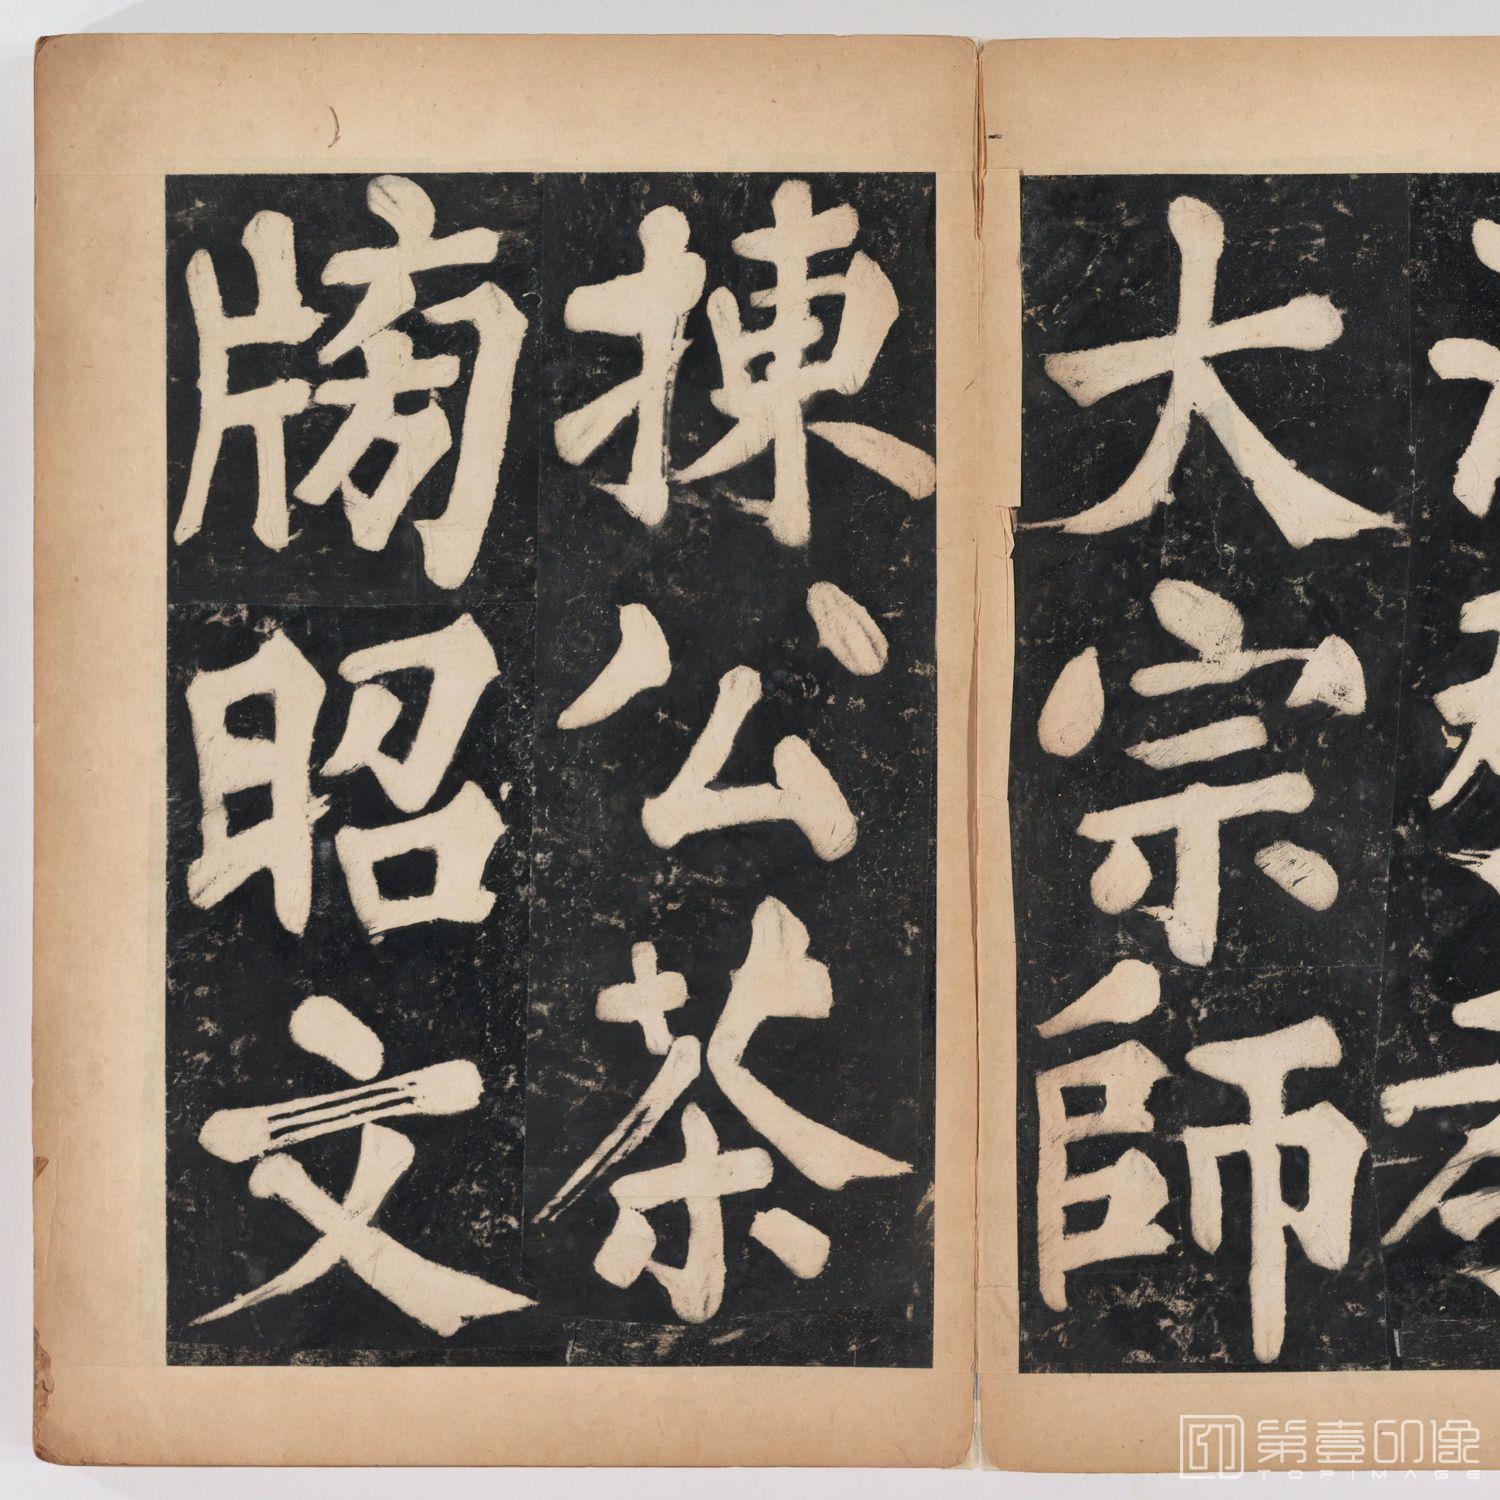 大宗師
揀公茶
牓昭文
第壹印像
TOPIMAGE